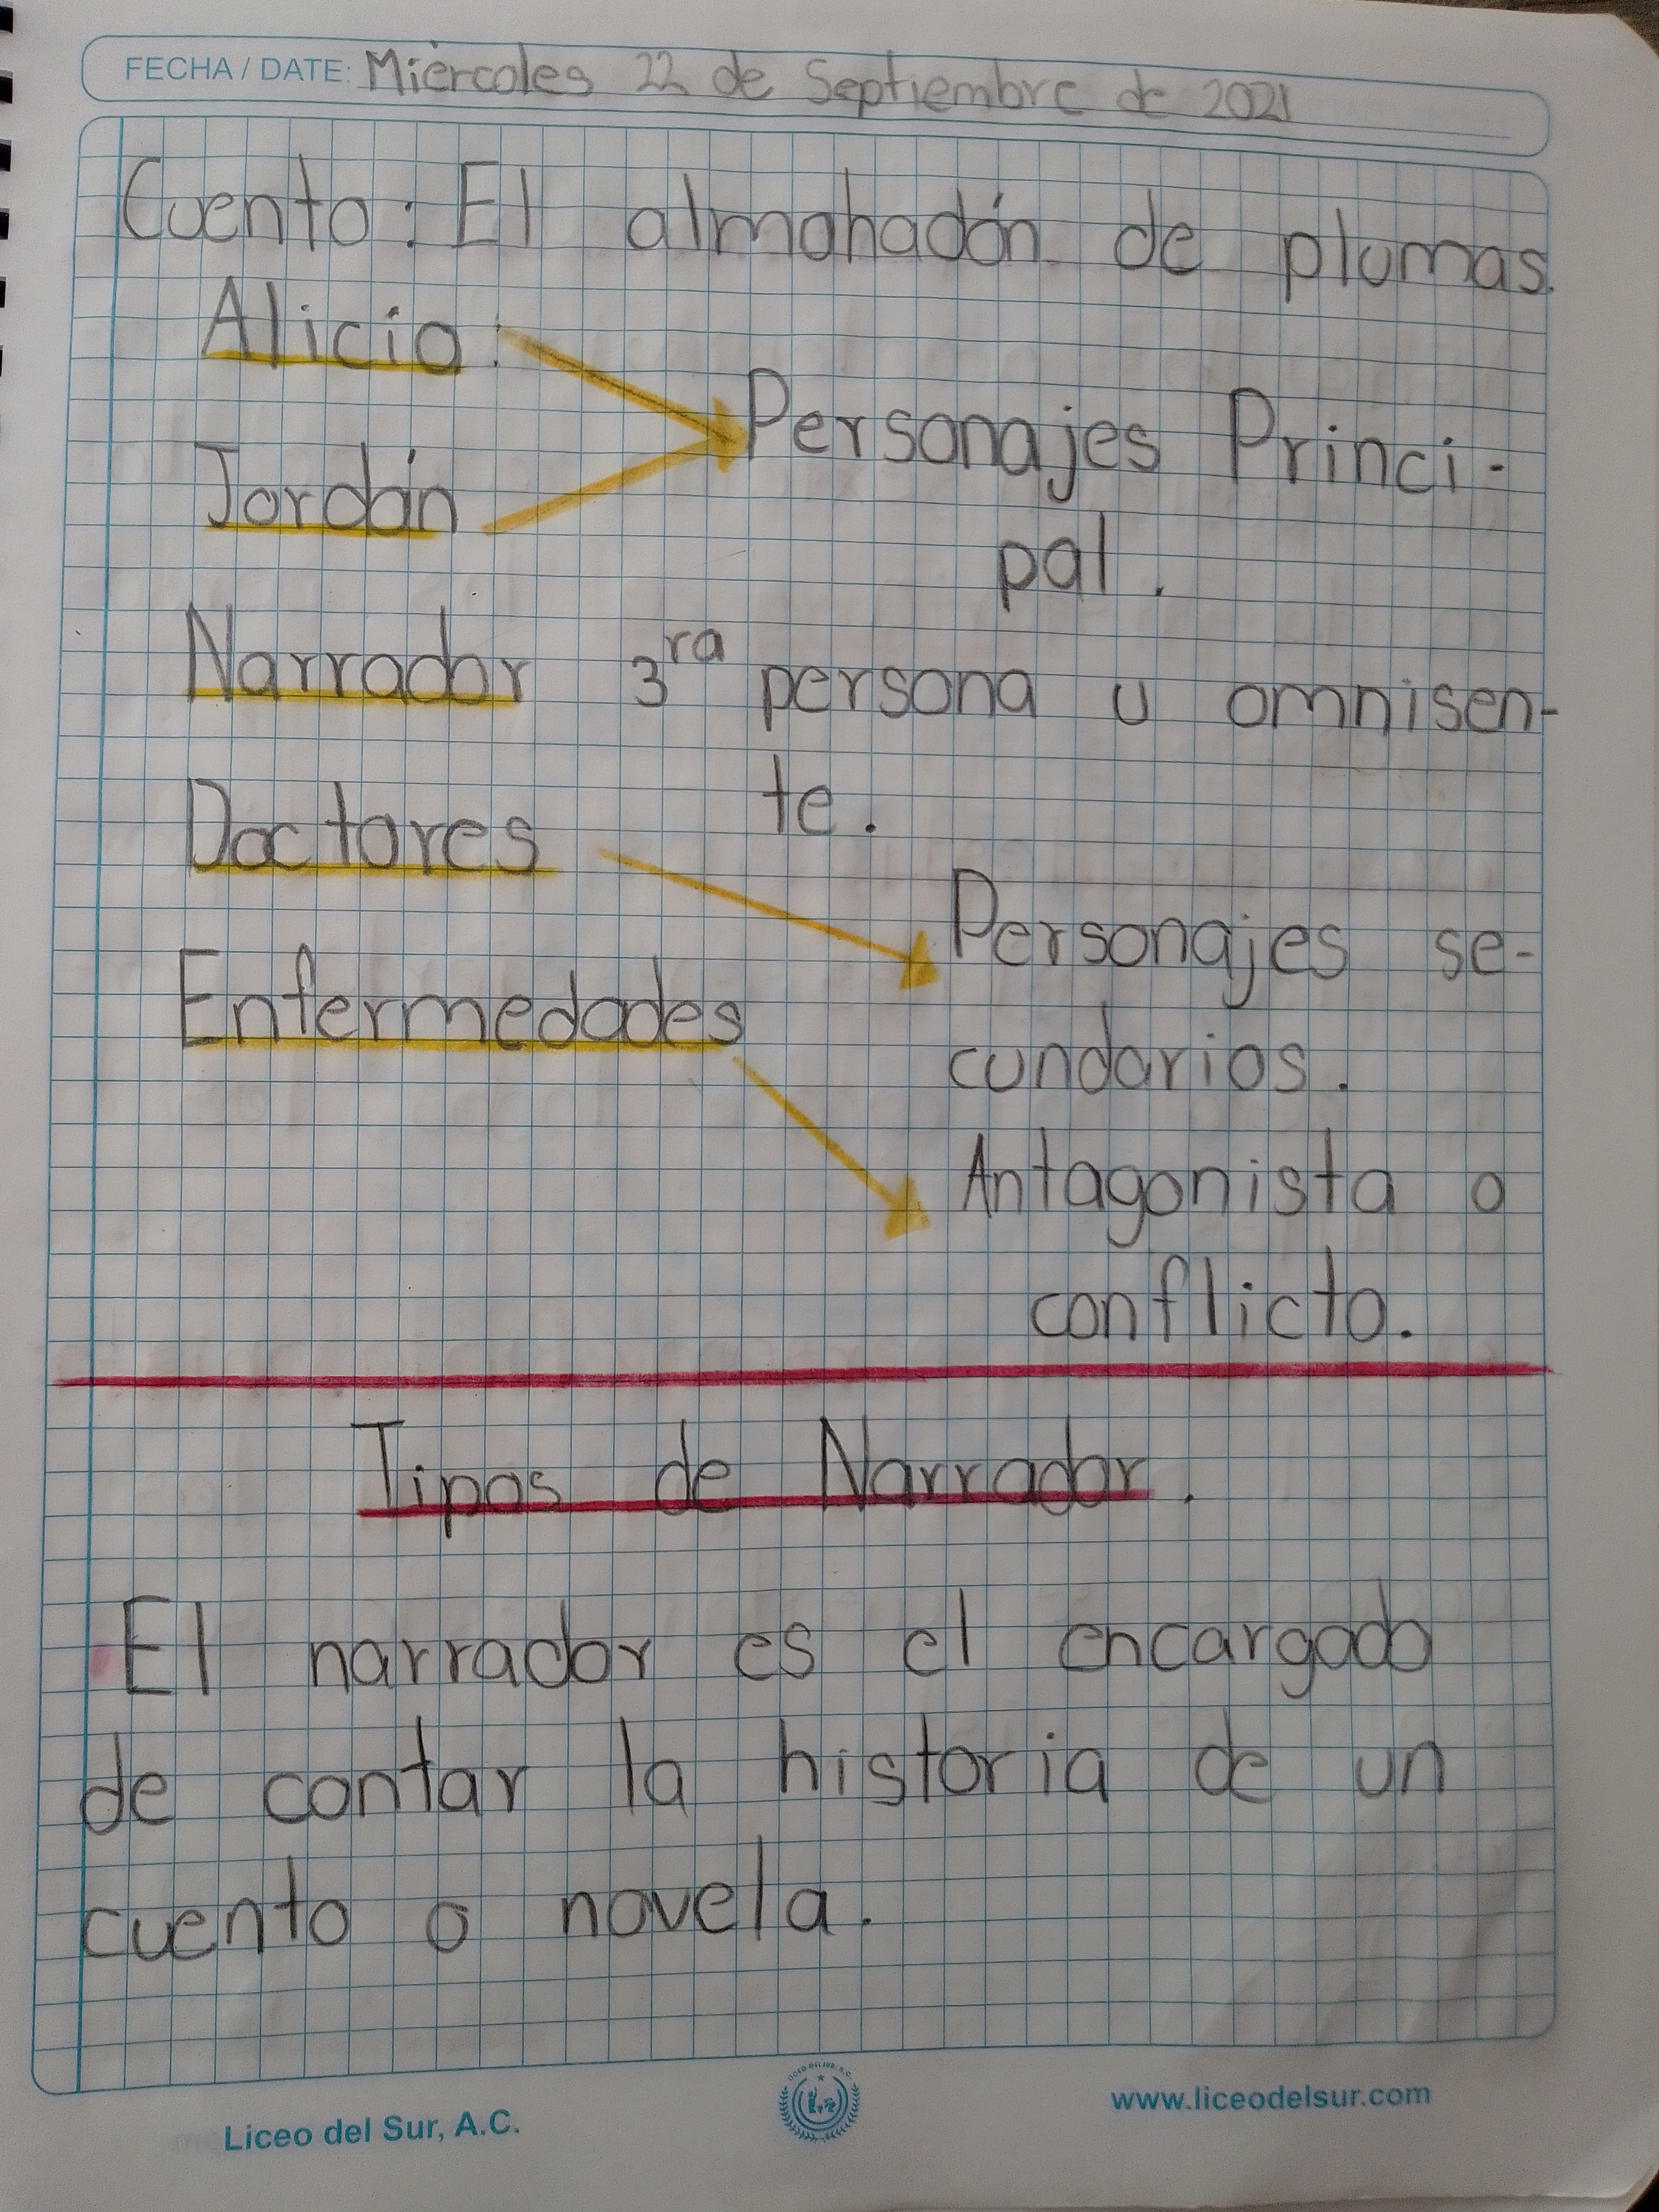 FECHA / DATE: Miércoles 22 de Septiembre de 2021
Cuento: El almohadón de plumas.
Alicia:
Personajes Princi-
Jordán
pal.
Narrador 3ra persona u omnisen-
te.
Doctores
Personajes se-
Enfermedades
cundarios.
Antagonista o
conflicto.
Tipos de Narrador.
El narrador es el encargado
de contar la historia de un
cuento o novela.
Liceo del Sur, A.C.
LICEO DEL SUR, A.C.
www.liceodelsur.com